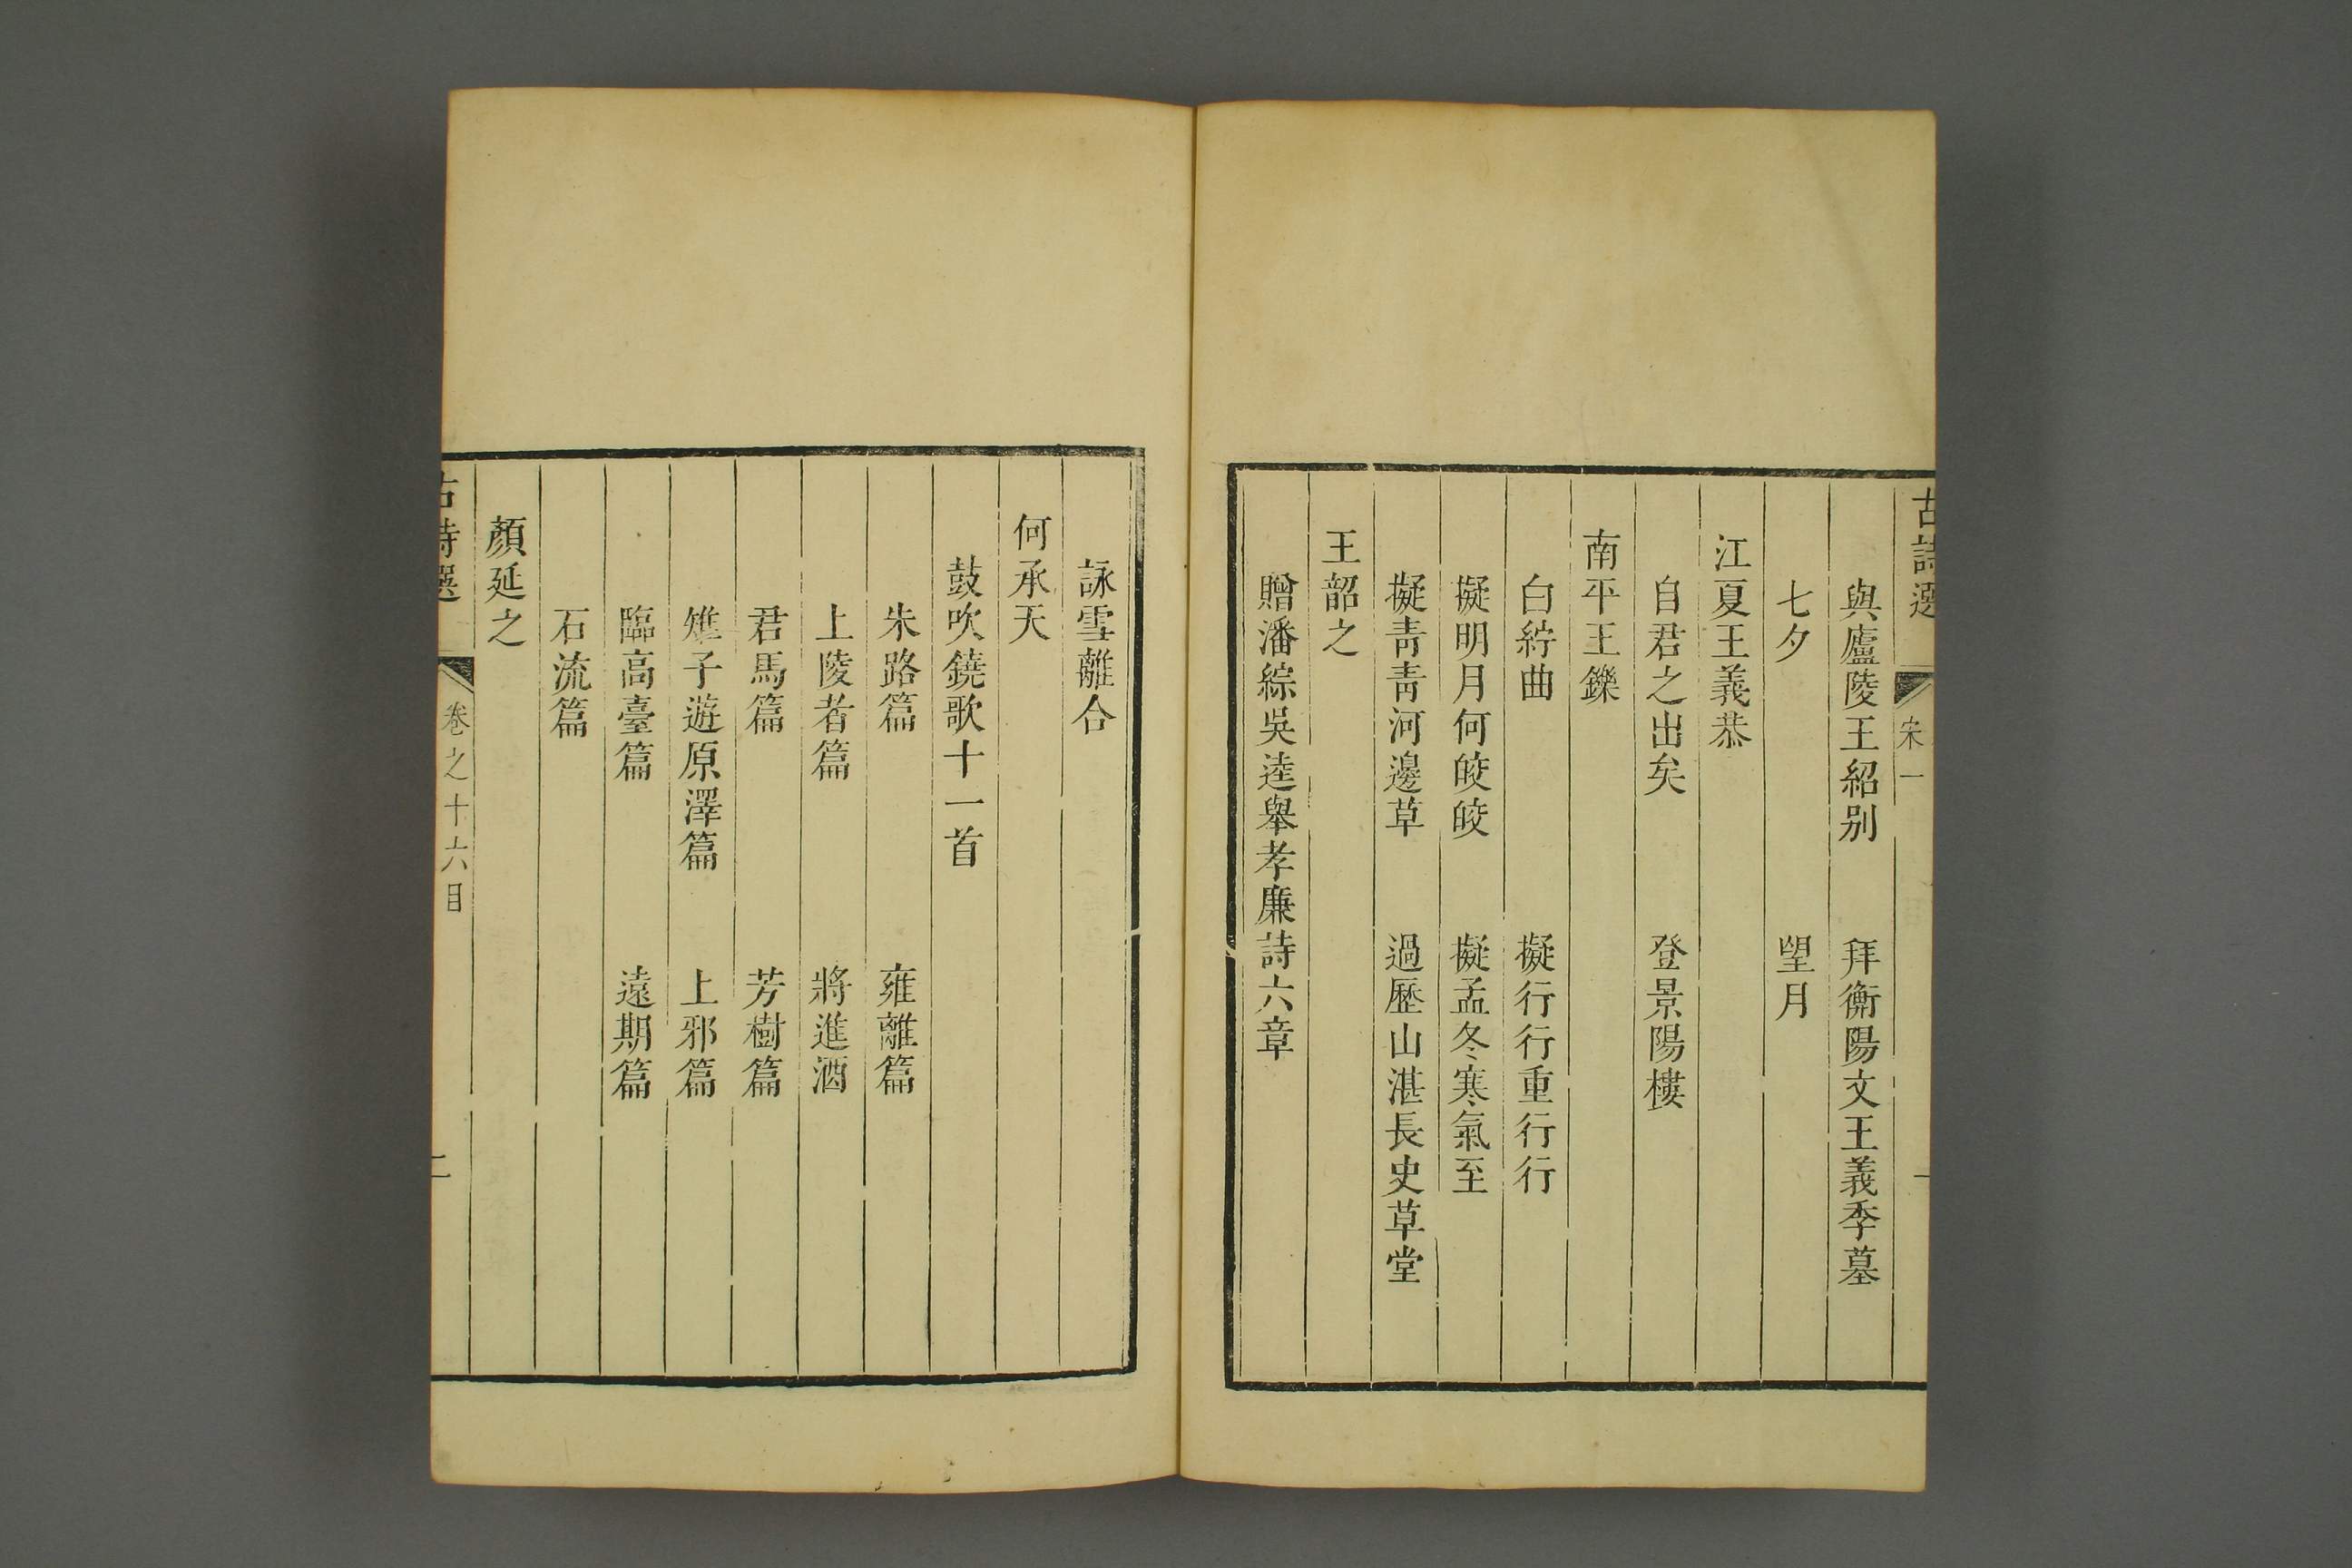 古詩選 宋一 一
與廬陵王紹别 拜衡陽文王義季墓
七夕 望月
江夏王義恭
自君之出矣 登景陽樓
南平王鑠
白紵曲 擬行行重行行
擬明月何皎皎 擬孟冬寒氣至
擬靑靑河邊草 過歷山湛長史草堂
王韶之
贈潘綜吳逵舉孝廉詩六章
詠雪離合
何承天
鼓吹鐃歌十一首
朱路篇 雍離篇
上陵者篇 將進酒
君馬篇 芳樹篇
雉子遊原澤篇 上邪篇
臨高臺篇 遠期篇
石流篇
顏延之
古詩選 卷之十六目 二